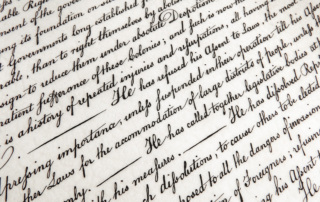 ment of the
ng its foundation on
Governments long established
able, than to right themselves by
sign to reduce them under absolute Despotism
patient sufferance of these Colonies; and such is now the
is a history of repeated injuries and usurpations, all having
He has refused his Assent to Laws, the most
pressing importance, unless suspended in their operation till his
other Laws for the accommodation of large districts of people, unless
He has called together legislative bodies at
only. with his measures. He has dissolved Rep
such dissolutions, to cause others to be elected
posed to all the dangers of invasion
of Foreigners;
his Assent